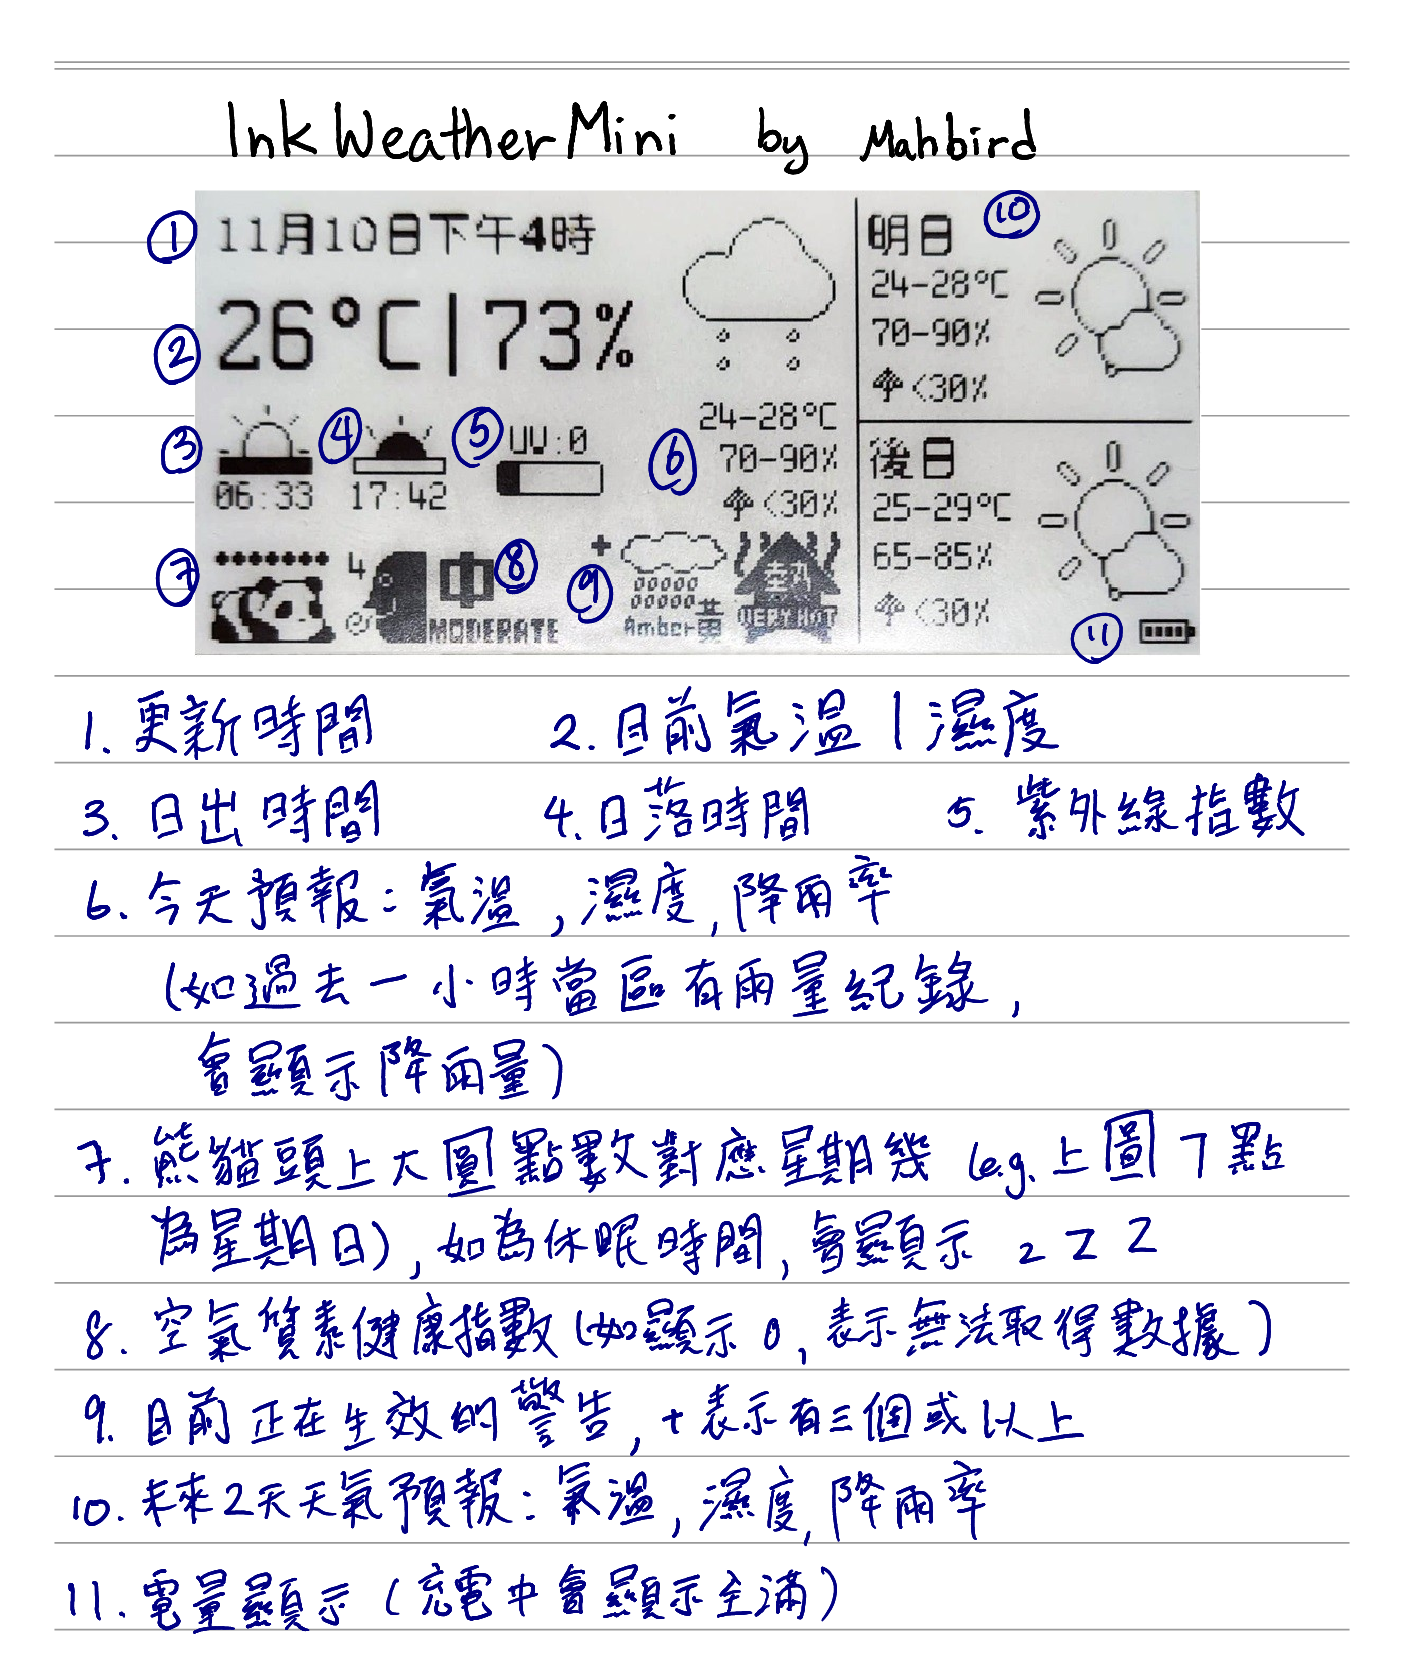 InkWeatherMini by Mahbird
① 11月10日下午4時
② 26°C|73%
③ 06:33
④ 17:42
⑤ UV:0
⑥ 24-28°C
70-90%
<30%
⑦
4 中 ⑧
MODERATE
⑨ +
Amber 黃
熱
VERY HOT
明日 ⑩
24-28°C
70-90%
<30%
後日
25-29°C
65-85%
<30%
⑪
1. 更新時間 2. 目前氣溫 | 濕度
3. 日出時間 4. 日落時間 5. 紫外線指數
6. 今天預報:氣溫,濕度,降雨率
(如過去一小時當區有雨量紀錄,
會顯示降雨量)
7. 熊貓頭上大圓點數對應星期幾 (e.g. 上圖7點
為星期日), 如為休眠時間, 會顯示 zZZ
8. 空氣質素健康指數 (如顯示0, 表示無法取得數據)
9. 目前正在生效的警告, +表示有三個或以上
10. 未來2天天氣預報:氣溫,濕度,降雨率
11. 電量顯示 (充電中會顯示全滿)